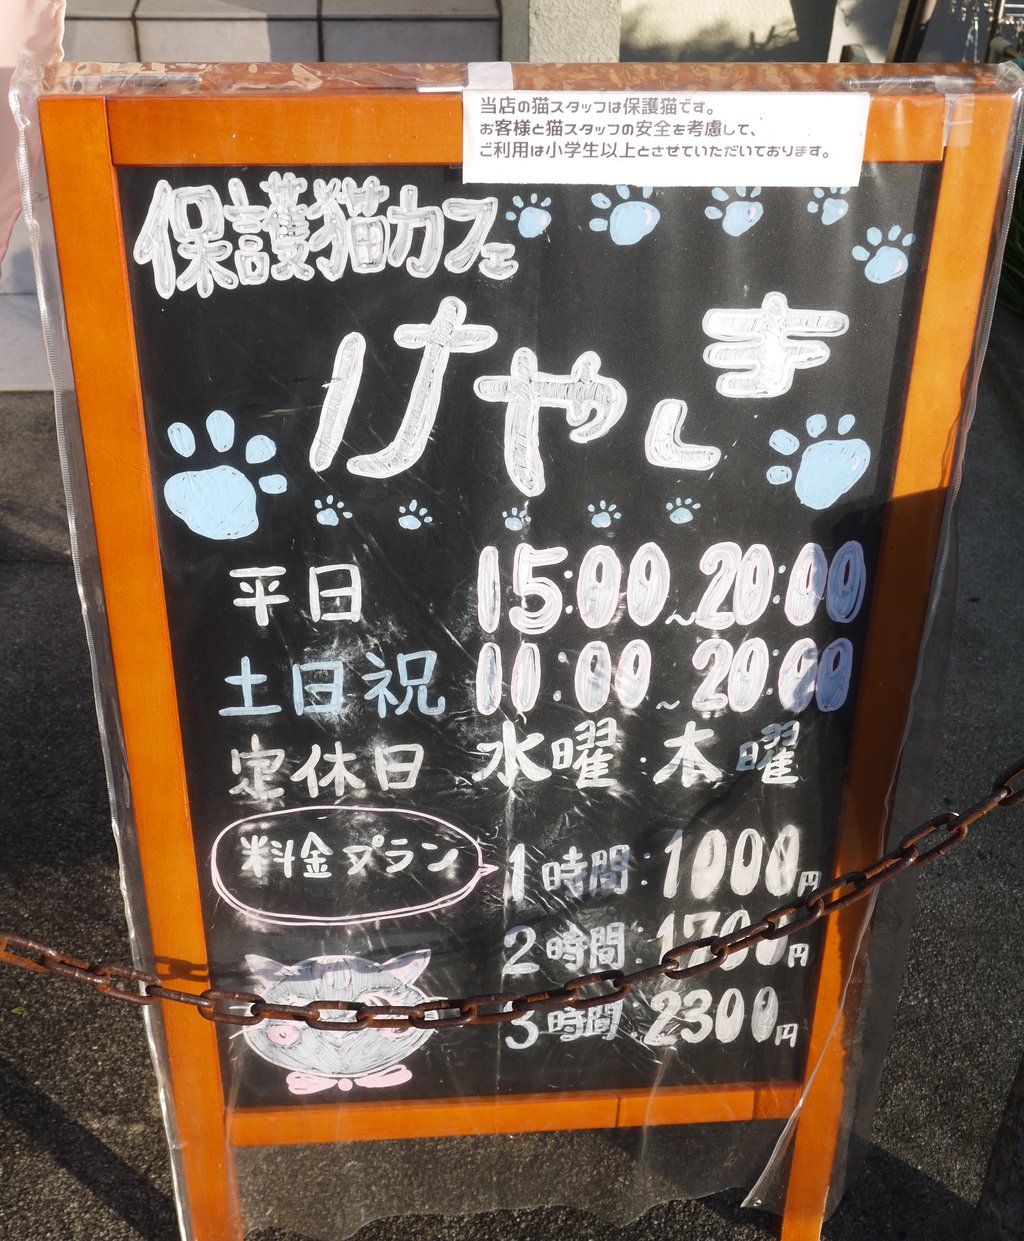 当店の猫スタッフは保護猫です。
お客様と猫スタッフの安全を考慮して、
ご利用は小学生以上とさせていただいております。
保護猫カフェ
けやき
平日 15:00~20:00
土日祝 11:00~20:00
定休日 水曜・木曜
料金プラン 1時間:1000円
2時間:1700円
3時間:2300円